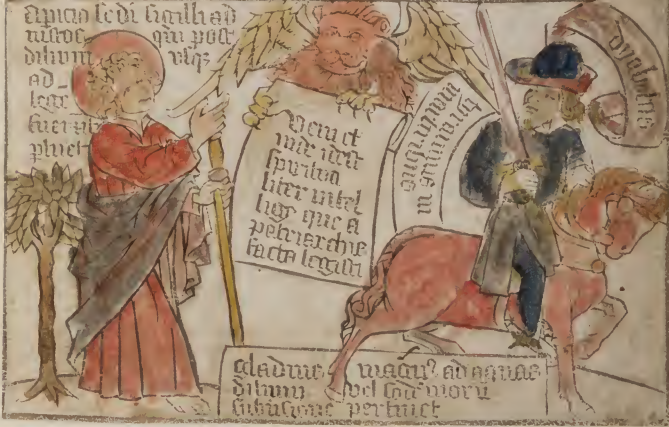 Apicio scdi sigilli ad
iustos qui post
diluuiu vsqꝫ
ad
lege
fuerut
ptinet
Veni et
vide id est
spiritua
liter intel
lige que a
patriarchis
facta legisti
dyabolus
gladius magnꝰ ad aquas
diluuii vel soðomorū
subuersione pertinet